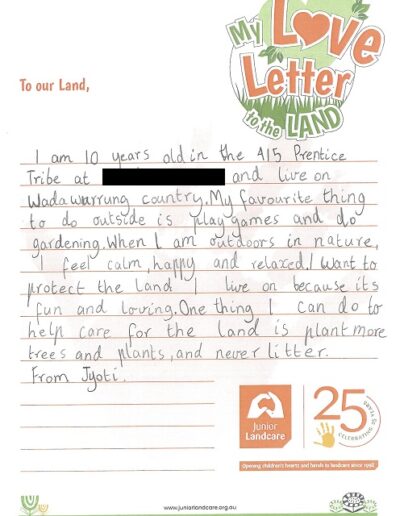 My Love
Letter
to the LAND
To our Land,
I am 10 years old in the 4/5 Prentice
Tribe at and live on
Wadawurrung country. My favourite thing
to do outside is play games and do
gardening. When I am outdoors in nature,
I feel calm, happy and relaxed. I want to
protect the land I live on because its
fun and loving. One thing I can do to
help care for the land is plant more
trees and plants, and never litter.
From Jyoti.
Junior
Landcare
25
CELEBRATING 25 YEARS
Opening children's hearts and hands to landcare since 1998
www.juniorlandcare.org.au